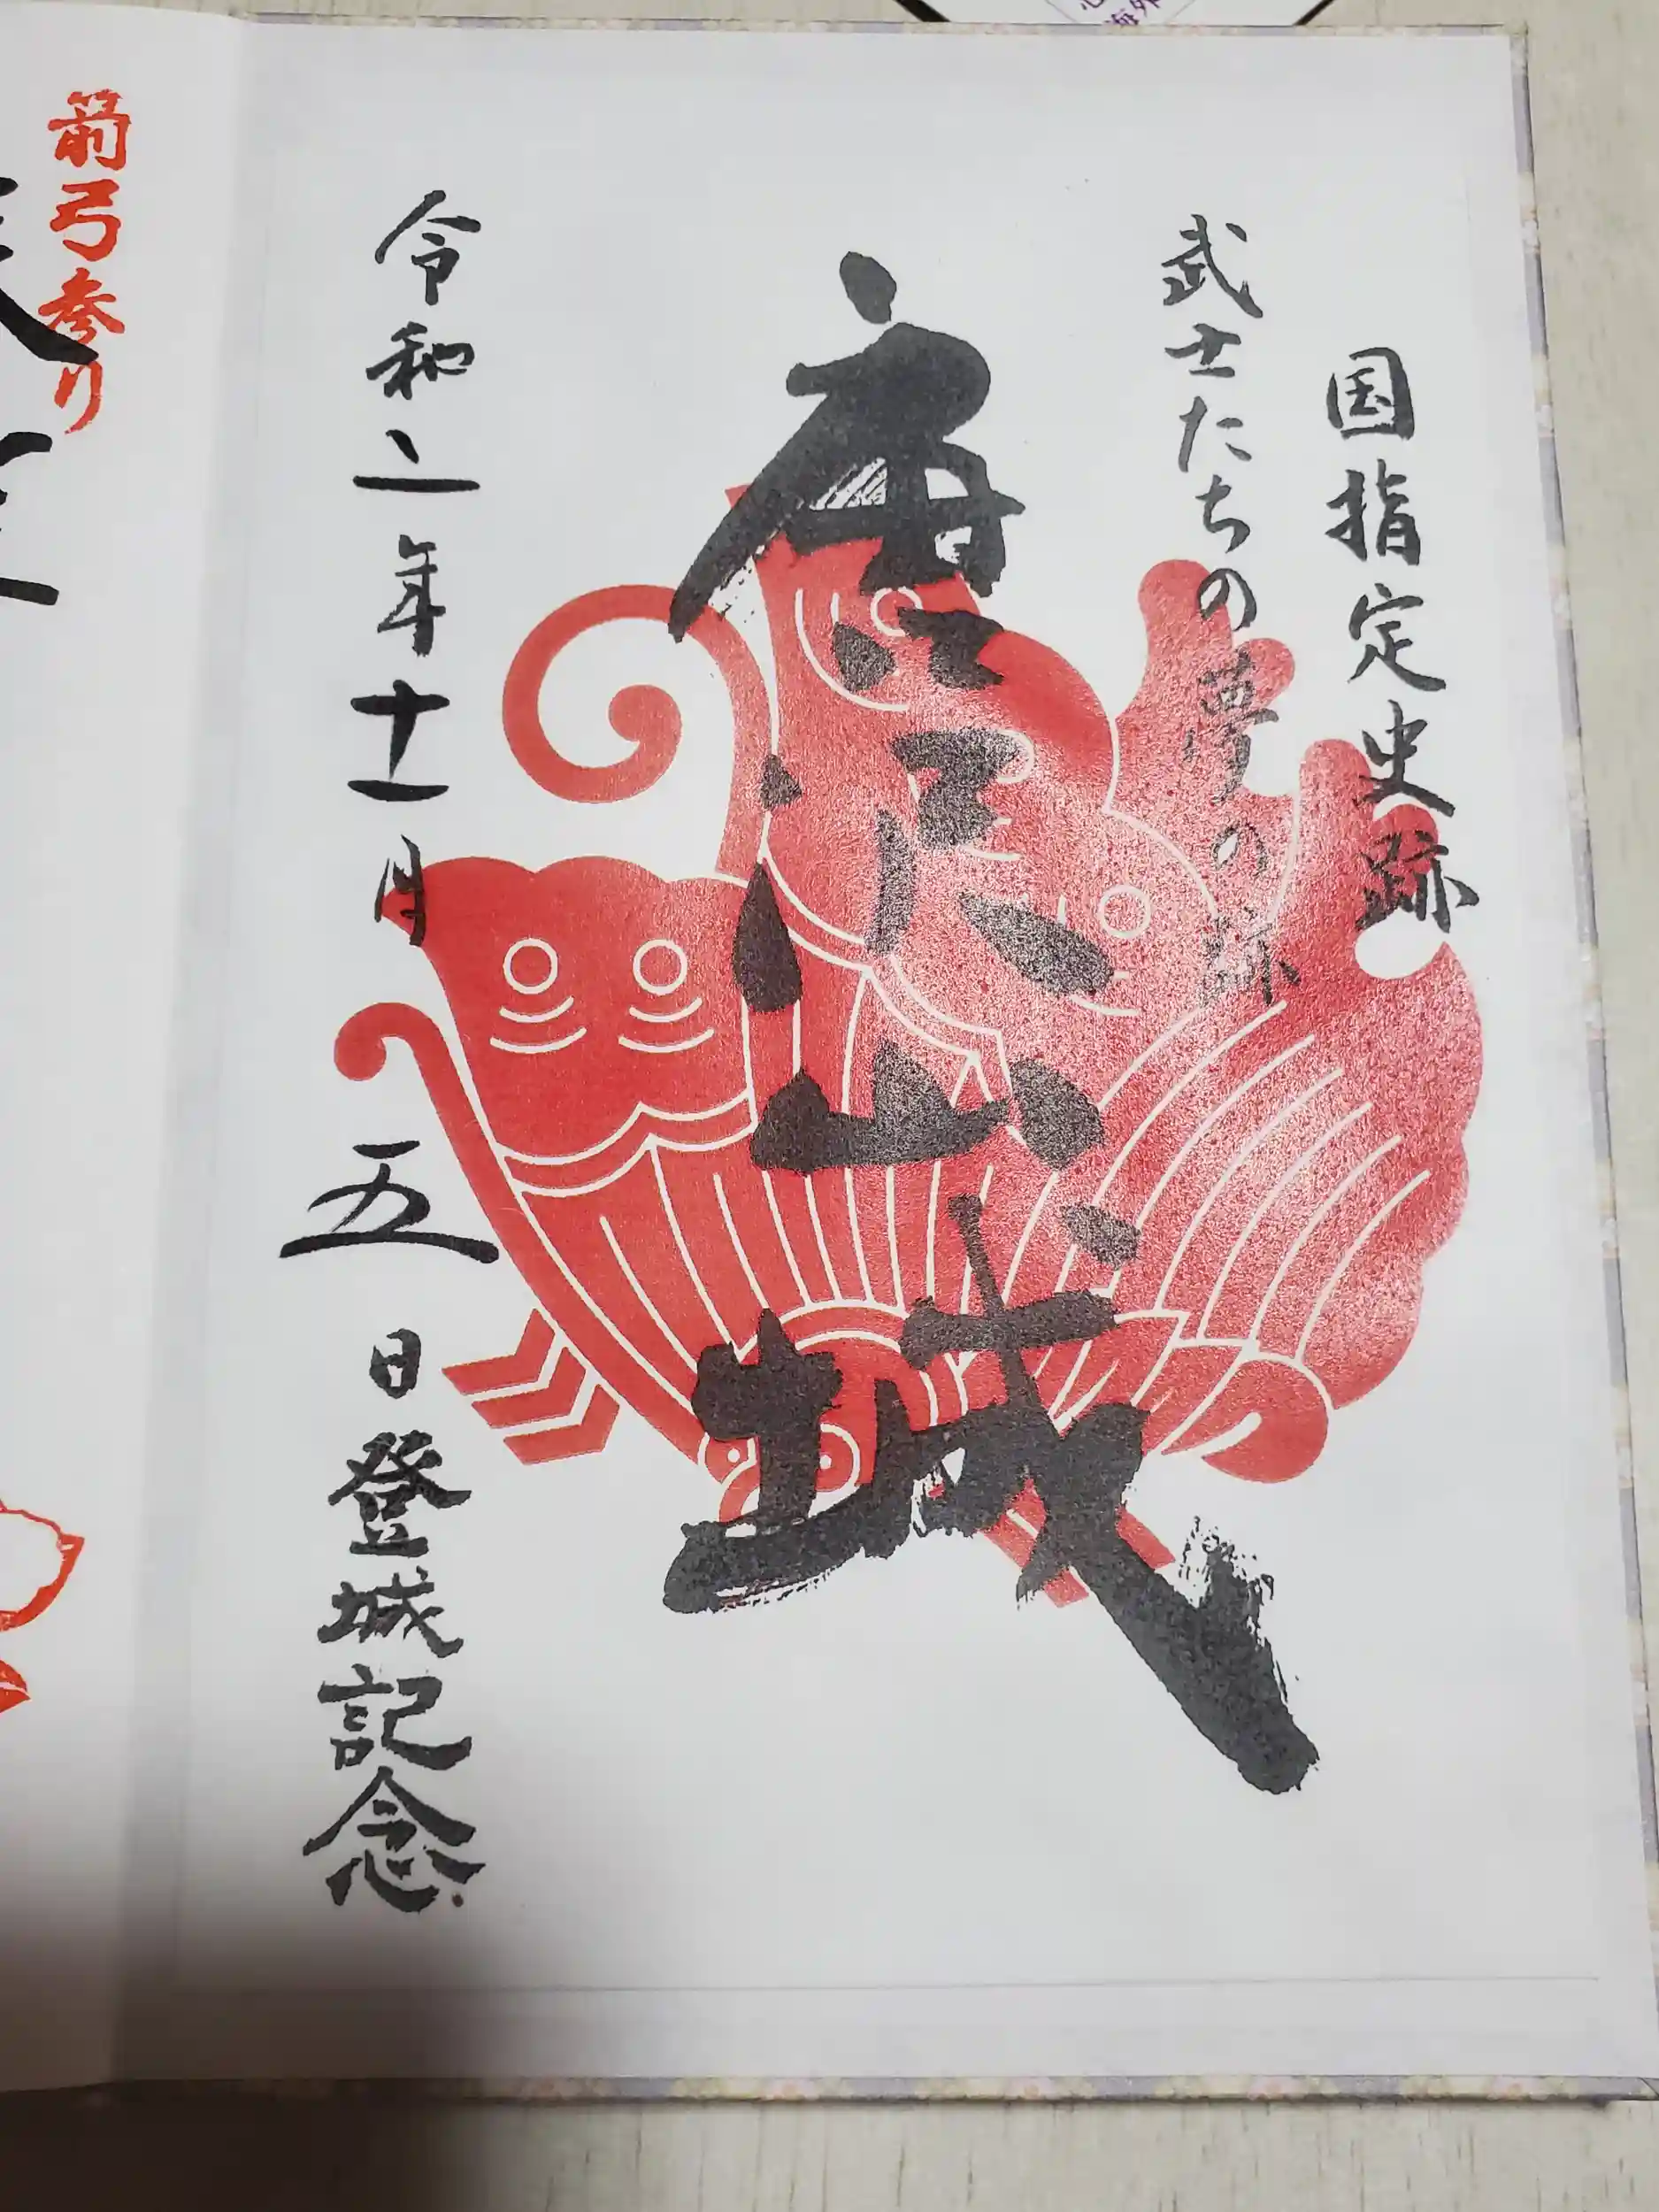 国指定史跡
武士たちの夢の跡
唐沢山城
令和二年十一月 五 日登城記念
箭弓参り